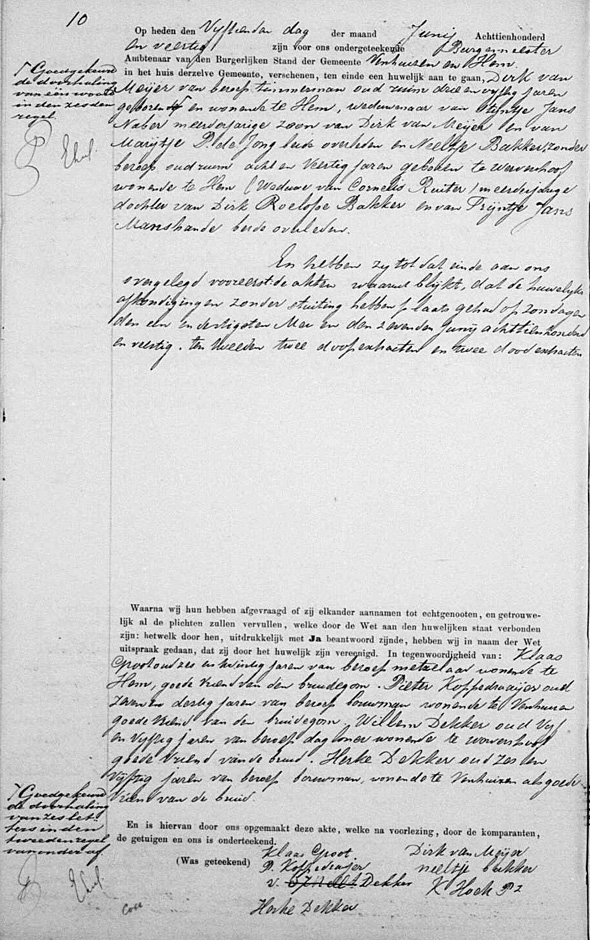 10
Op heden den Vyftienden dag der maand Junij Achttienhonderd
en veertig zijn voor ons ondergeteekende Burgemeester
Ambtenaar van den Burgerlijken Stand der Gemeente Venhuizen en Hem.
in het huis derzelve Gemeente, verschenen, ten einde een huwelijk aan te gaan, Dirk van
Meijer van beroep timmerman oud ruim drie en vyftig jaren
geboren en wonende te Hem, weduwenaar van Jans
Naber meerderjarige zoon van Dirk van Meijer en van
Marijtje P. de Jong beide overleden en Neeltje Bakker zonder
beroep oud ruim acht en Veertig jaren geboren te Wervershoof
wonende te Hem (Weduwe van Cornelis Ruiter) meerderjarige
dochter van Dirk Roelofse Bakker en van Trijntje Jans
Manshande beide overleden.
7 Goedgekeurd
de doorhaling
van één woord
in den zesden
regel.
En hebben zy tot dat einde aan ons
overgelegd vooreerst de akten waaruit blijkt, dat de huwelyks
afkondigingen zonder stuiting hebben plaats gehad op zondagen
den een en dertigsten Mei en den zevenden Junij achttienhonderd
en veertig. ten tweeden twee doopextracten en twee doodextracten
Waarna wij hun hebben afgevraagd of zij elkander aannamen tot echtgenooten, en getrouwe-
lijk al de plichten zullen vervullen, welke door de Wet aan den huwelijken staat verbonden
zijn: hetwelk door hen, uitdrukkelijk met Ja beantwoord zijnde, hebben wij in naam der Wet
uitspraak gedaan, dat zij door het huwelijk zijn vereenigd. In tegenwoordigheid van: Klaas
Groot oud zes en twintig jaren van beroep metzelaar wonende te
Hem, goede vriend van den bruidegom. Pieter Koppedraaijer oud
zeven en dertig jaren van beroep bouwman wonende te Venhuizen
goede vriend van den bruidegom, Willem Dekker oud Vyf
en Vyftig jaren van beroep daglooner wonende te Wervershoof
goede vriend van de bruid. Herke Dekker oud zes en
Vyftig jaren van beroep bouwman, wonende te Venhuizen als goede
vriend van de bruid.
7 Goedgekeurd
de doorhaling
van zes let-
ters in den
tweeden regel
van onder af
En is hiervan door ons opgemaakt deze akte, welke na voorlezing, door de komparanten,
de getuigen en ons is onderteekend.
(Was geteekend) Klaas Groot Dirk van Meijer
P. Koppedraaijer neeltje bakker
Dekker K Hoek Pz
Herke Dekker